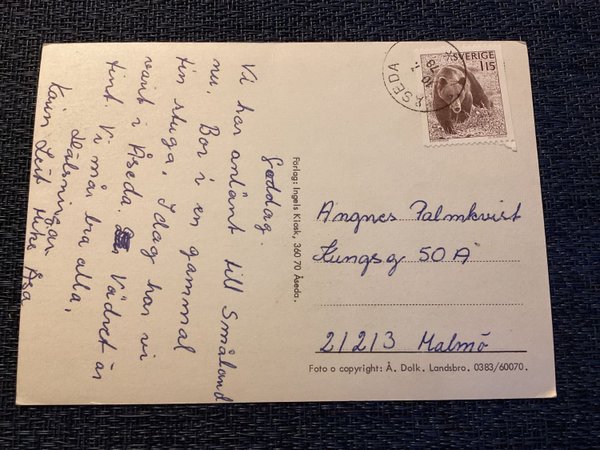 Goddag.
Vi har anlänt till Småland
nu. Bor i en gammal
fin stuga. Idag har vi
varit i Åseda. Vädret är
fint. Vi mår bra alla.
Hälsningar
Karin Leif Åsa
Förlag: Ingels Kiosk, 360 70 Åseda.
SVERIGE
115
ÅSEDA
Angnes Palmkvist
Kungsg 50 A
21213 Malmö
Foto o copyright: Å. Dolk. Landsbro. 0383/60070.